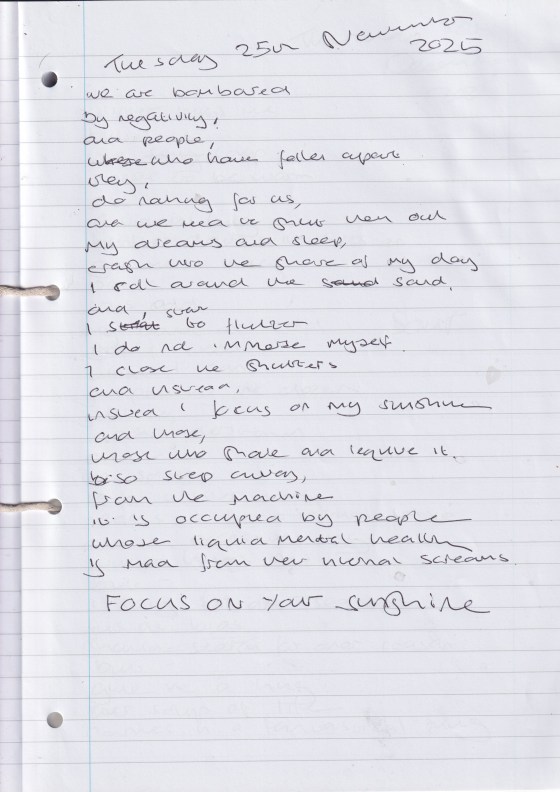 Tuesday 25th November
2025
we are bombarded
by negativity,
and people,
who have fallen apart
they,
do nothing for us,
and we need to them out
My dreams and sleep,
crash into the share of my day
I roll around the sand.
and, start
I to flutter
I do not immerse myself.
I close the shutters
and instead,
instead I focus on my sunshine
and those,
those who share and require it.
so step away,
from the machine
it is occupied by people
whose liquid mental health
is mad from their internal screams.
FOCUS ON YOUR SUNSHINE